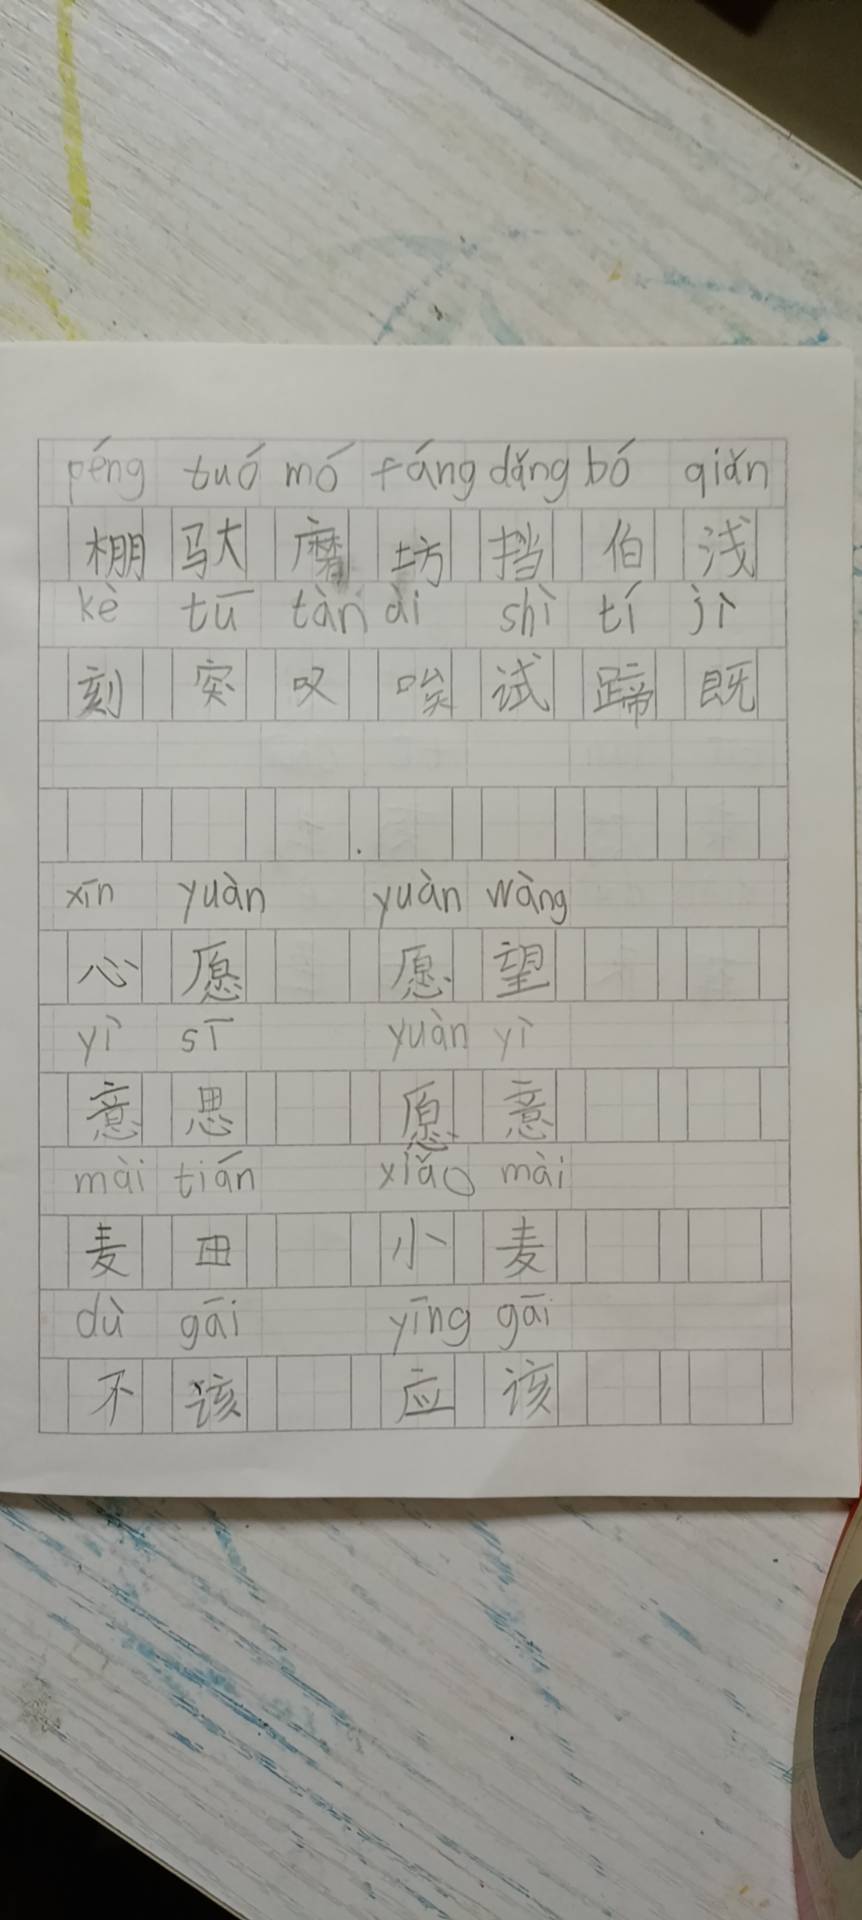 péng tuó mó fáng dǎng bó qiǎn
棚 驮 磨 坊 挡 伯 浅
kè tū tàn ài shì tí jì
刻 突 叹 唉 试 蹄 既
xīn yuàn yuàn wàng
心 愿 愿 望
yì sī yuàn yì
意 思 愿 意
mài tián xiǎo mài
麦 田 小 麦
dù gāi yīng gāi
不 该 应 该